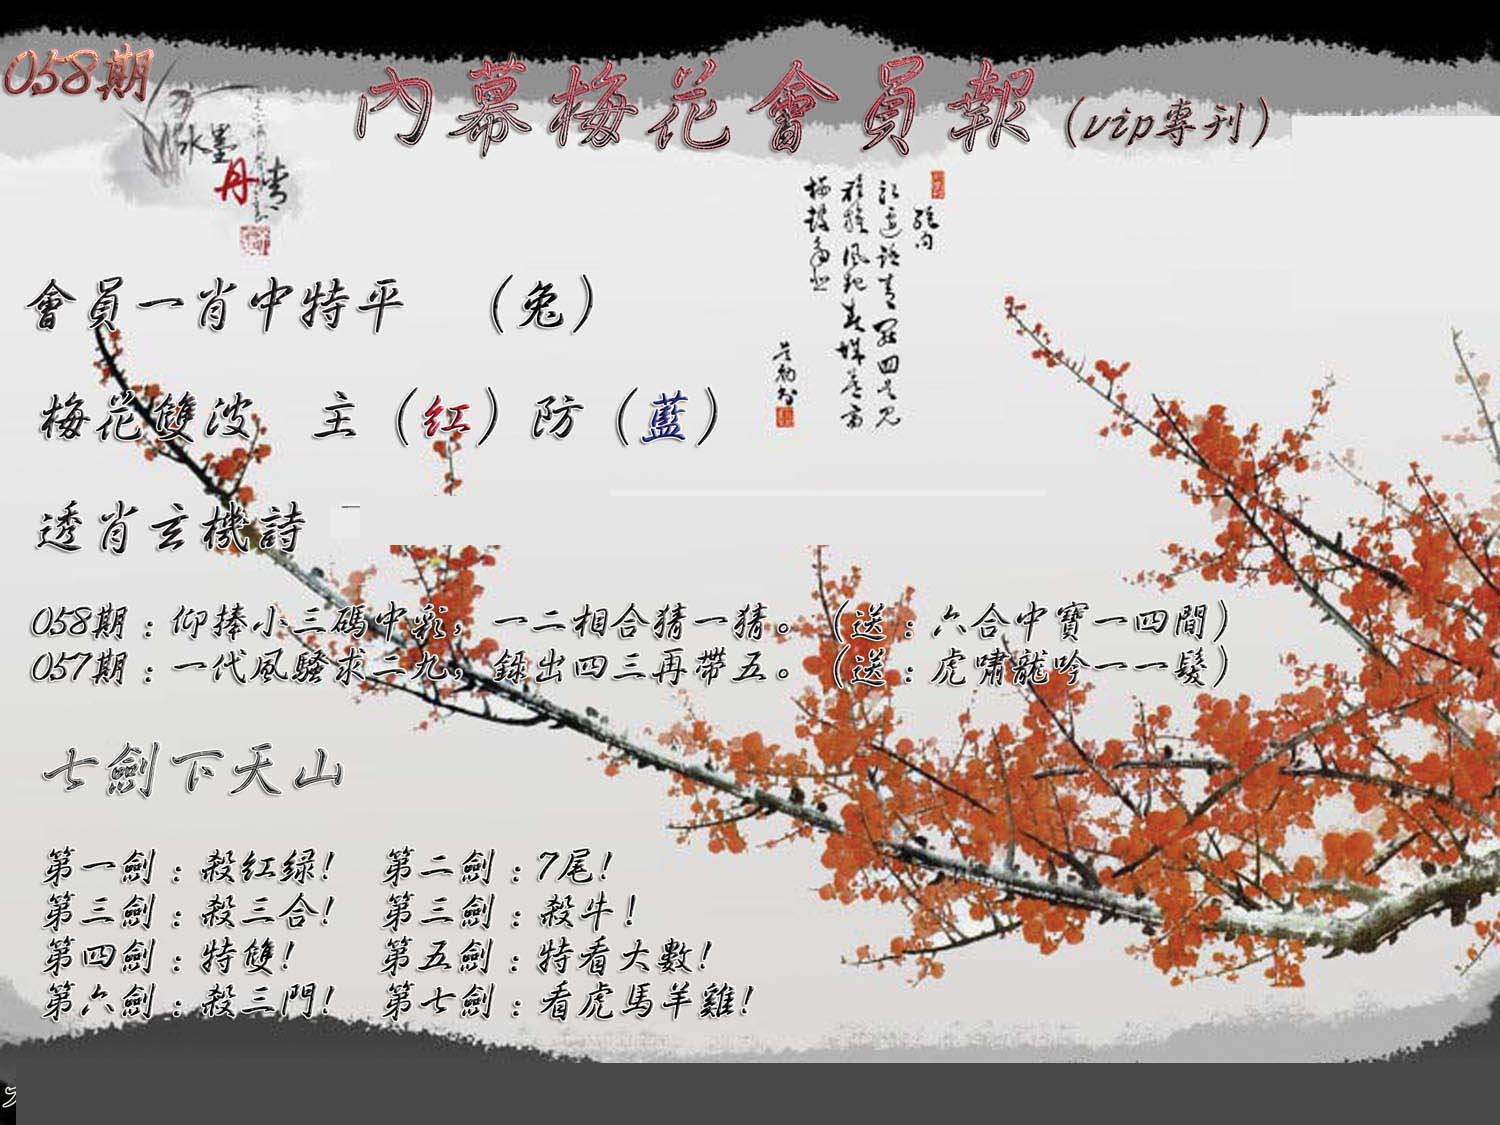 058期
內幕梅花會員報（vip專刊）
水墨
丹青
會員一肖中特平　（兔）
梅花雙波　主（紅）防（藍）
透肖玄機詩
058期：仰捧小三碼中彩，一二相合猜一猜。（送：六合中寶一四間）
057期：一代風騷求二九，錄出四三再帶五。（送：虎嘯龍吟一一髮）
七劍下天山
第一劍：殺紅綠!　第二劍：7尾!
第三劍：殺三合!　第三劍：殺牛!
第四劍：特雙!　第五劍：特看大數!
第六劍：殺三門!　第七劍：看虎馬羊雞!